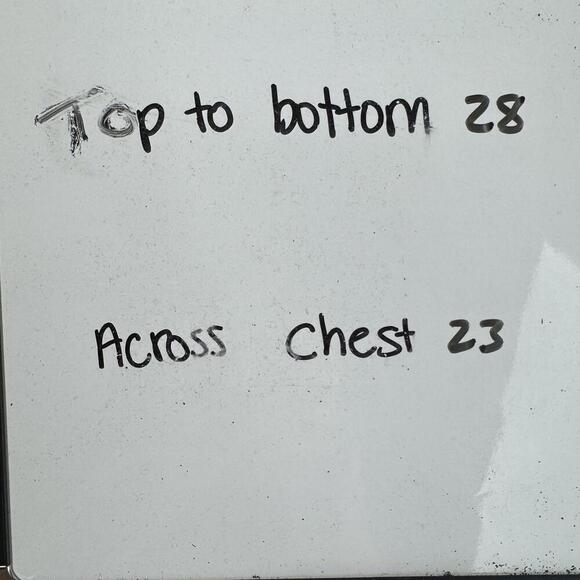 Top to bottom 28
Across Chest 23